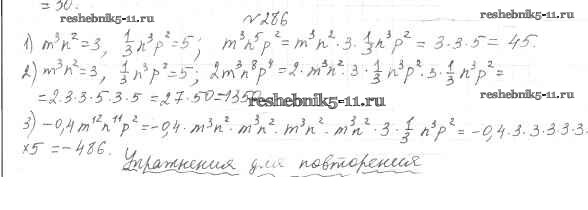 = 30.
reshebnik5-11.ru
№286
reshebnik5-11.ru
1) m³n²=3, 1/3 n³p²=5; m³n⁵p²=m³n²·3·1/3 n³p² = 3·3·5 = 45.
2) m³n²=3, 1/3 n³p²=5; 2m³n⁸p⁴=2·m³n²·3·1/3 n³p²·3·1/3 n³p²=
reshebnik5-11.ru
reshebnik5-11.ru
=2·3·3·5·3·5 = 27·50=1350
reshebnik5-11.ru
3) -0,4m¹²n¹¹p²=-0,4·m³n²·m³n²·m³n²·m³n²·3·1/3 n³p² = -0,4·3·3·3·3·3·
×5 = -486.
Упражнения для повторения